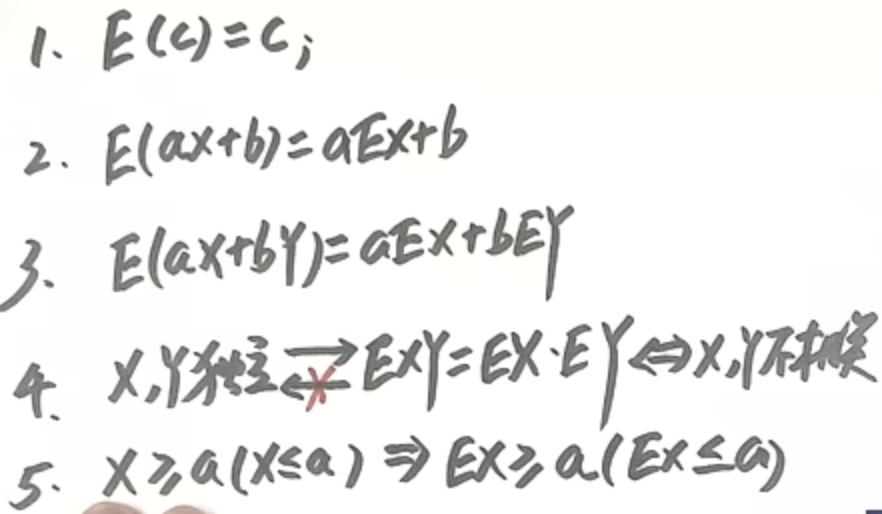 1. E(c)=c;
2. E(ax+b)=aEx+b
3. E(ax+bY)=aEx+bEY
4. X,Y独立⇄EXY=EX·EY⇔X,Y不相关
5. X≥a(X≤a)⇒EX≥a(EX≤a)